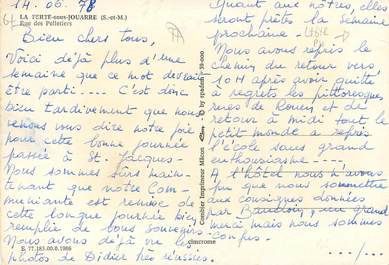 14.06.78
LA FERTE-sous-JOUARRE (S.-et-M.)
Rue des Pelletiers
Bien chers tous,
Voici déjà plus d'une
semaine que ce mot devrait
être parti.... C'est donc
bien tardivement que nous
venons vous dire notre joie
pour cette bonne journée
passée à St. Jacques.
Nous sommes sûrs main-
tenant que notre Com-
muniante est remise de
cette longue journée bien
remplie de bons souvenirs.
Nous avons déjà vu les
photos de Didier très réussies.
E. 77.183.00.0.1066
cimcrome
Combier Imprimeur Mâcon
by spadem
Quant aux nôtres, elles
seront prêtes la semaine
prochaine.
Nous avons repris le
chemin du retour vers
10H après avoir quitté
à regrets les pittoresques
rues de Rouen et de
retour à midi tout le
petit monde a repris
l'école sans grand
enthousiasme ----
A l'hôtel nous n'avons
pu que nous soumettre
aux consignes données
par un grand
merci mais nous sommes
confus.
.../...